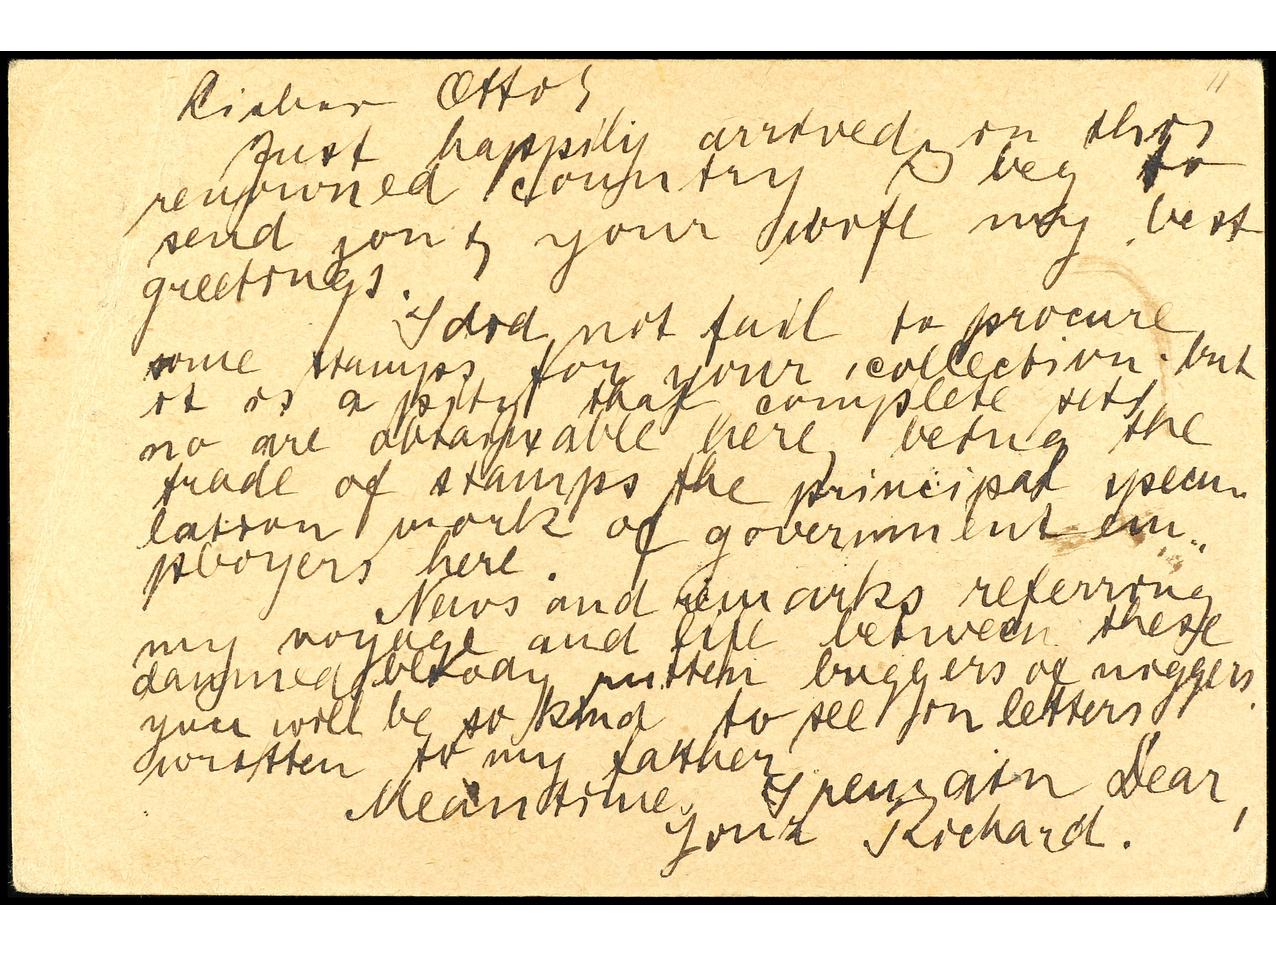 Lieber Otto!
Just happily arrived in this
renowned country I beg to
send you & your wife my best
greetings.
I did not fail to procure
some stamps for your collection but
it is a pity that complete sets
no are obtainable here, being the
trade of stamps the principal specu-
lation work of government em-
ployers here.
News and remarks referring
my voyage and life between these
damned bloody rotten buggers of niggers
you will be so kind to see in letters
written to my father.
Meantime I remain Dear,
your Richard.